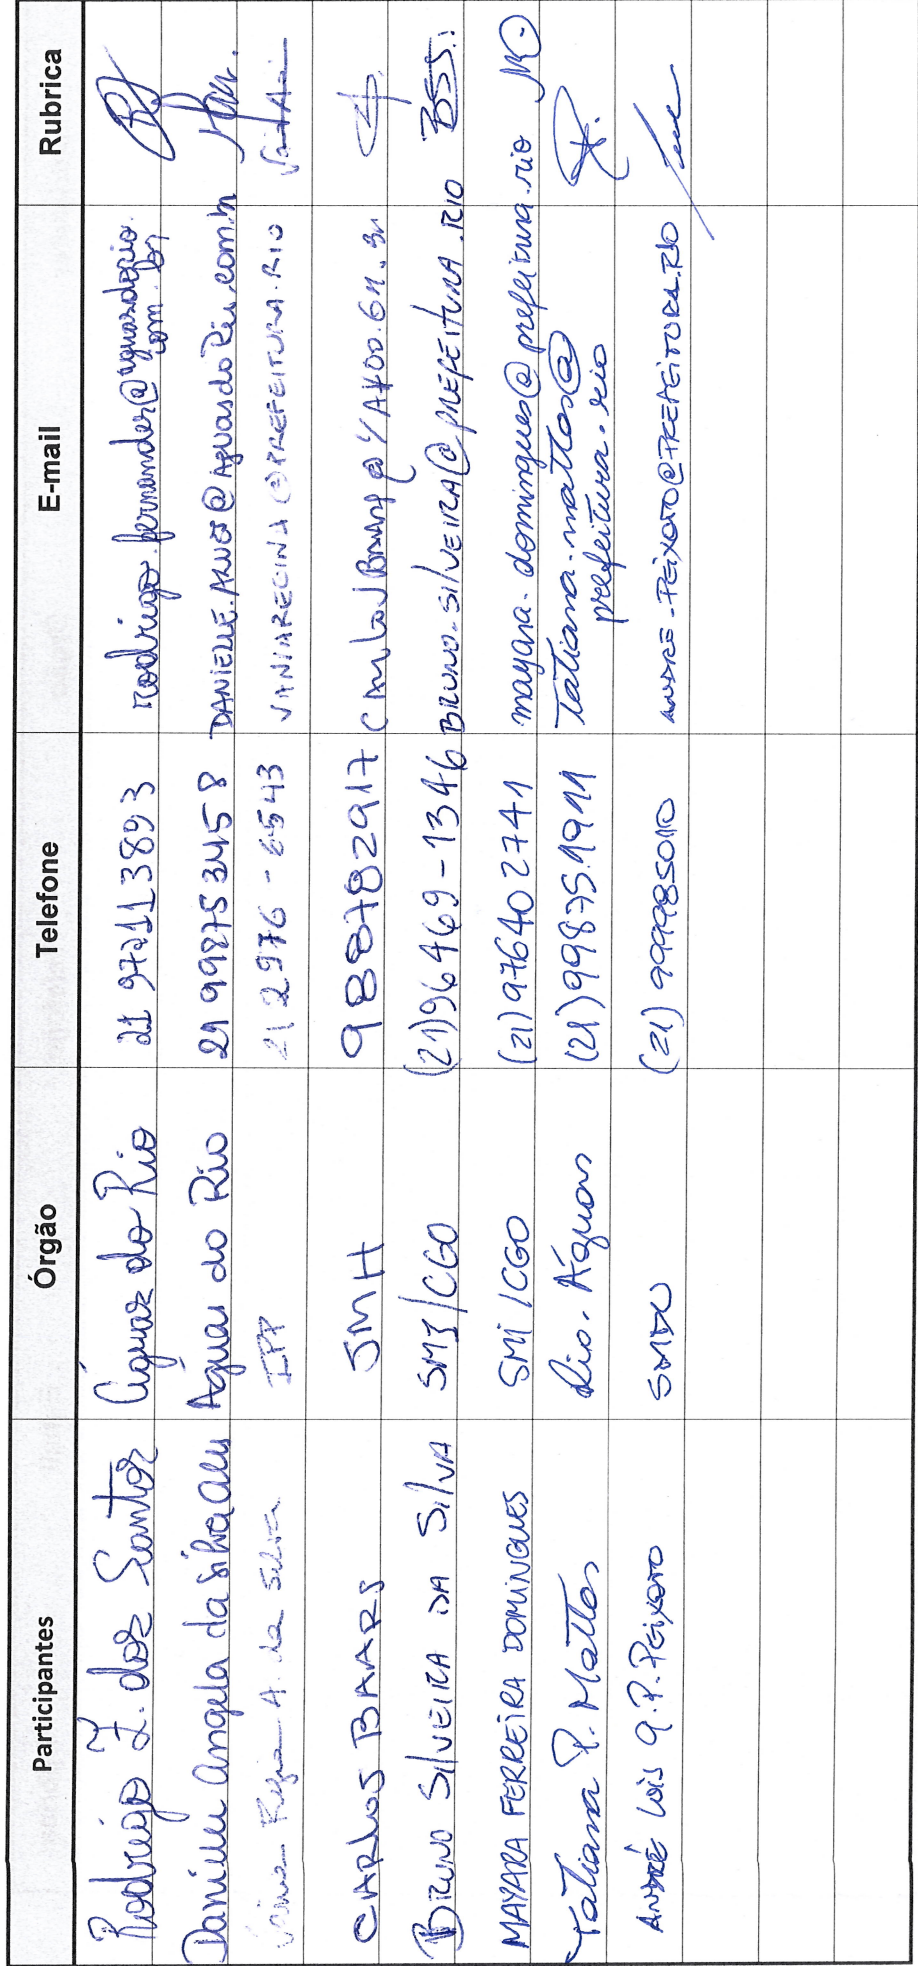 Participantes Órgão Telefone E-mail Rubrica
Rodrigo F. dos Santos Águas do Rio 21 972113893 rodrigo.fernandes@aguasdorio.
com.br
Danielle Angela da Silva Águas do Rio 21 998753458
Vania Regina A. da Silva IPP 21 2976-6543 VANIAREGINA@PREFEITURA.RIO
CARLOS BAARS JMH 988782917
BRUNO SILVEIRA DA SILVA SMI/CGO (21)96469-1346 BRUNO.SILVEIRA@PREFEITURA.RIO BSS.
MAYARA FERREIRA DOMINGUES SMI/CGO (21)976402741 mayara.domingues@prefeitura.rio
Tatiana P. Mattos Rio-Águas (21)99875.1911 tatiana.mattos@
prefeitura.rio
ANDRÉ LUIS Q.P. PEIXOTO SMDU (21) 999985010 ANDRE.PEIXOTO@PREFEITURA.RIO